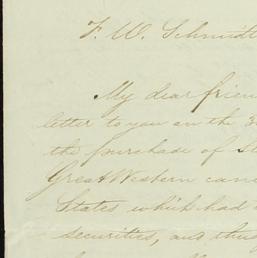 F. W. Schmidt
My dear frien
letter to you on the 3
the purchase of S
Great Western can
States which had
securities, and thus